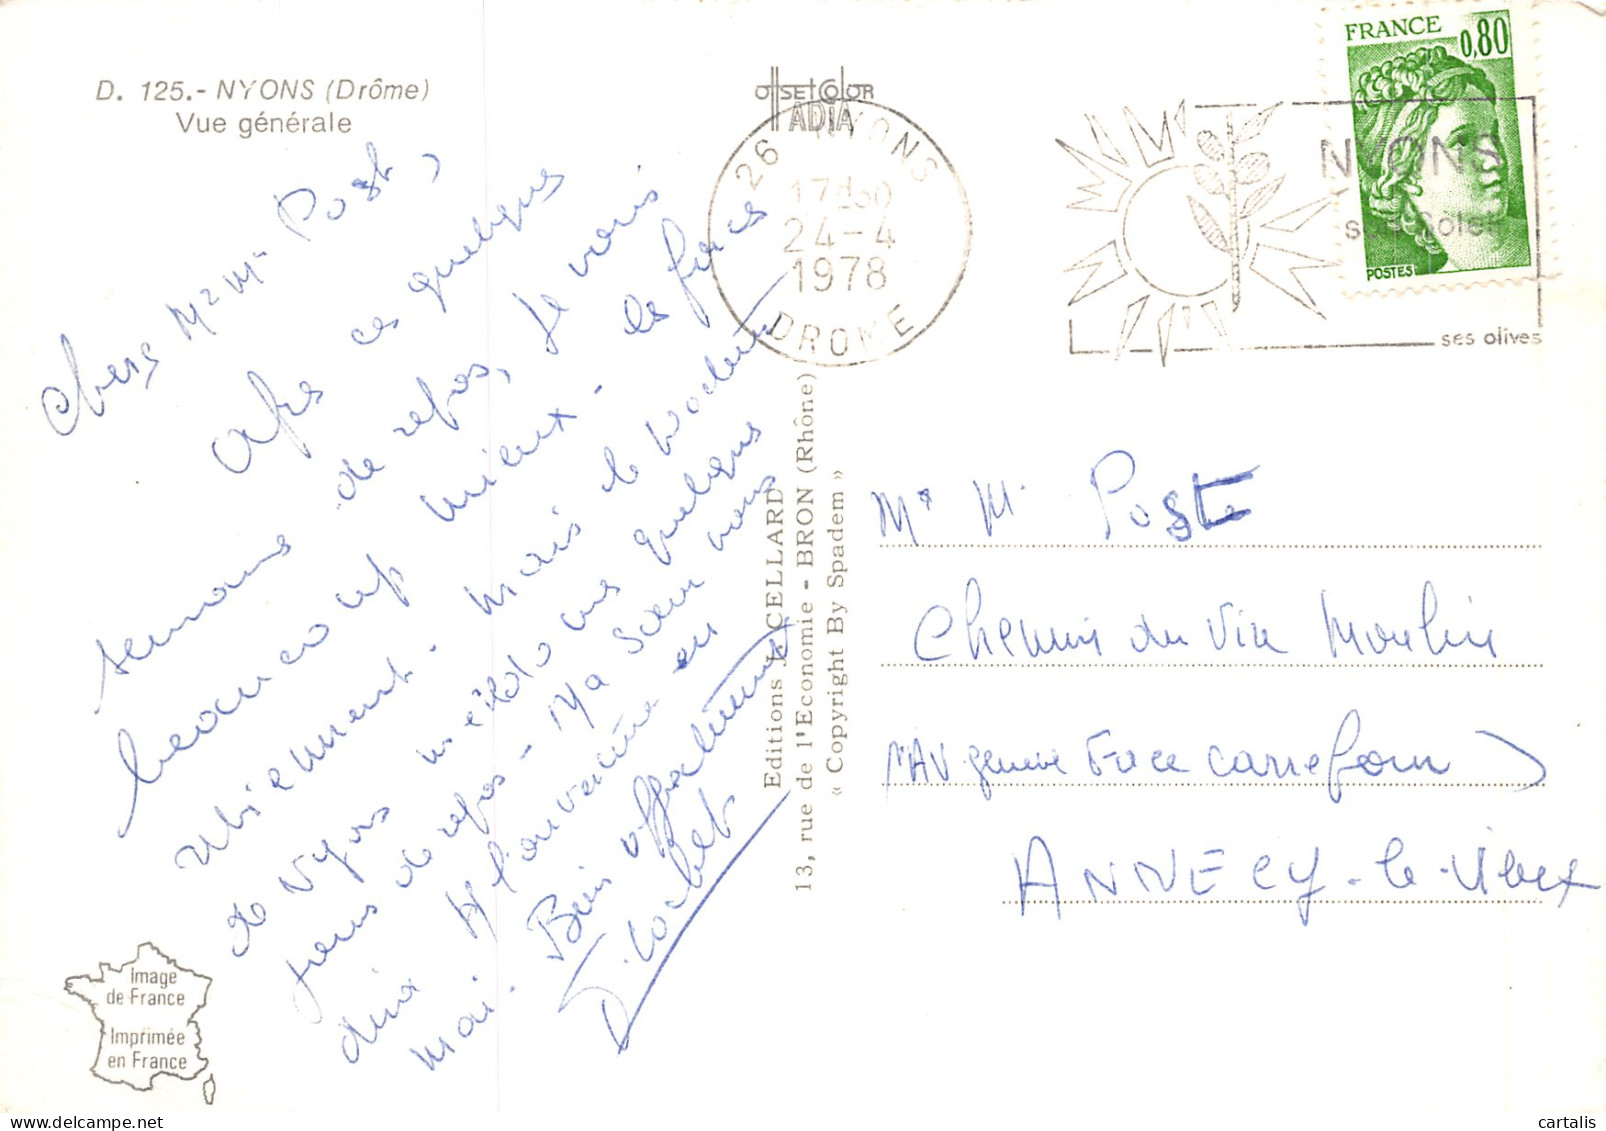 D. 125.- NYONS (Drôme)
Vue générale
offset color
ADIA
26 NYONS
17H30
24-4
1978
DROME
NYONS
son Soleil
ses olives
FRANCE
0,80
POSTES
Chers Mr M. Post,
Après ces quelques
semaines de repos, je vais
beaucoup mieux. les forces
reviennent. Mais le docteur
de Nyons quelques
jours de repos. Ma Soeur vous
dira l'ouverture en
mai. Bien affectueusement
Editions J. CELLARD
13, rue de l'Economie - BRON (Rhône)
« Copyright By Spadem »
Mr M. Post
Chemin du Vieux Moulin
AV genève Face Carrefour
ANNECY-le-Vieux
Image
de France
Imprimée
en France
cartalis